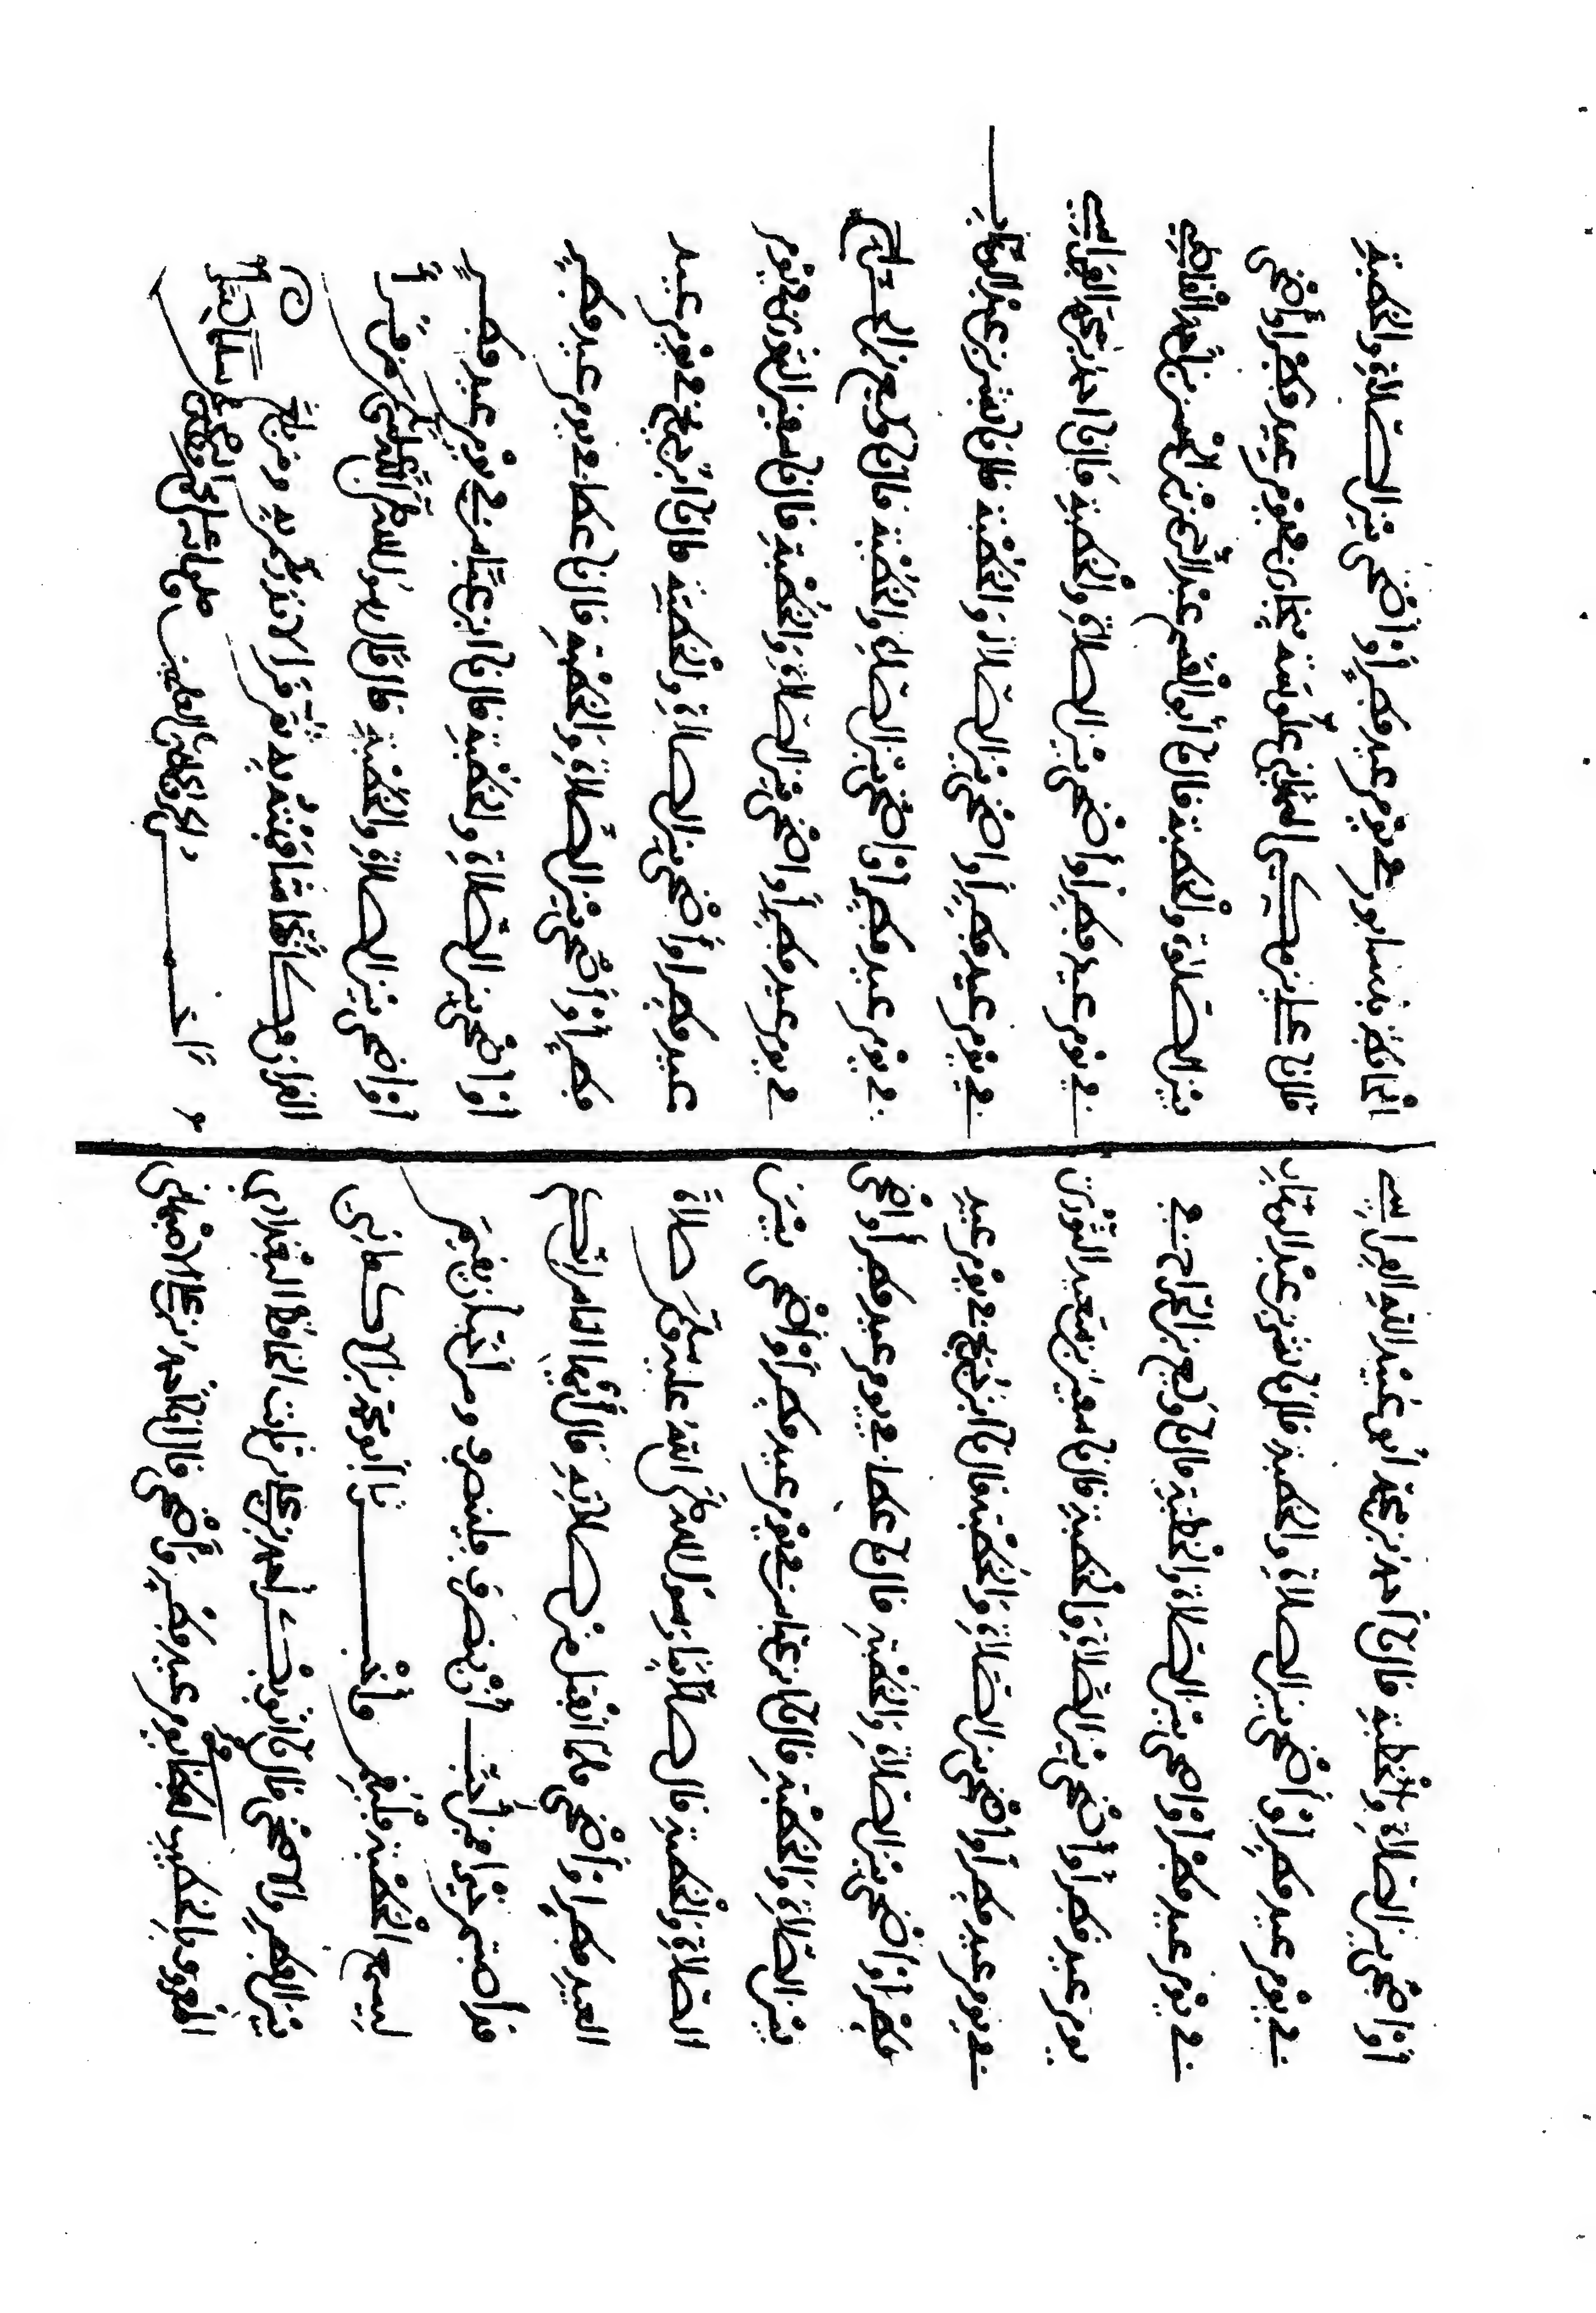 أو أضحى بين الصلاة والخطبة قال نا أحمد بن محمد أبو عبيد الله الفراسي
في يوم عيد فطر أو أضحى بين الصلاة والخطبة قال نا بشر بن عبد الوهاب
في يوم عيد فطر أو أضحى بين الصلاة والخطبة قال نا وكيع بن الجراح في
يوم عيد فطر أو أضحى بين الصلاة والخطبة قال نا سفين بن سعيد الثوري
في يوم عيد فطر أو أضحى بين الصلاة والخطبة قال نا ابن جريج في يوم عيد
فطر أو أضحى بين الصلاة والخطبة قال نا عطاء في يوم عيد فطر أو أضحى
بين الصلاة والخطبة قال نا ابن عباس في يوم عيد فطر أو أضحى بين
الصلاة والخطبة قال صلى بنا رسول الله صلى الله عليه وسلم صلاة
العيد فطر أو أضحى فلما انفتل من صلاته قال أيها الناس
قد أصبتم خيرا فمن أحب أن ينصرف فلينصرف ومن أحب أن يقيم
ليسمع الخطبة فليقم وأخبرنا أبو محمد بن الأكفاني
بين الفطر والأضحى قال نا أبو بكر أحمد بن علي بن ثابت الحافظ البغدادي
المعروف بالخطيب لفظا يوم عيد فطر وأضحى قال نا أحمد بن علي الأصبهاني
الحافظ بنيسابور في يوم عيد فطر أو أضحى بين الصلاة والخطبة
قال نا علي بن ببخارى في يوم عيد فطر أو أضحى
بين الصلاة والخطبة قال نا أبو القسم عبد الرحمن بن الحسن بن أحمد القاضي
في يوم عيد فطر أو أضحى بين الصلاة والخطبة قال نا أحمد بن محمد الفراسي
في يوم عيد فطر أو أضحى بين الصلاة والخطبة قال نا بشر بن عبد الوهاب
في يوم عيد فطر أو أضحى بين الصلاة والخطبة قال نا وكيع بن الجراح
في يوم عيد فطر أو أضحى بين الصلاة والخطبة قال نا سفين الثوري في يوم
عيد فطر أو أضحى بين الصلاة والخطبة قال نا ابن جريج في يوم عيد
فطر أو أضحى بين الصلاة والخطبة قال نا عطاء في يوم عيد فطر
أو أضحى بين الصلاة والخطبة قال نا ابن عباس في يوم عيد فطر
أو أضحى بين الصلاة والخطبة قال قال رسول الله صلى الله عليه وسلم من قرأ
القرآن فكأنما شافهته به ثم قرأ لأنذركم به ومن بلغ
والحمد لله رب العلمين وصلى الله على